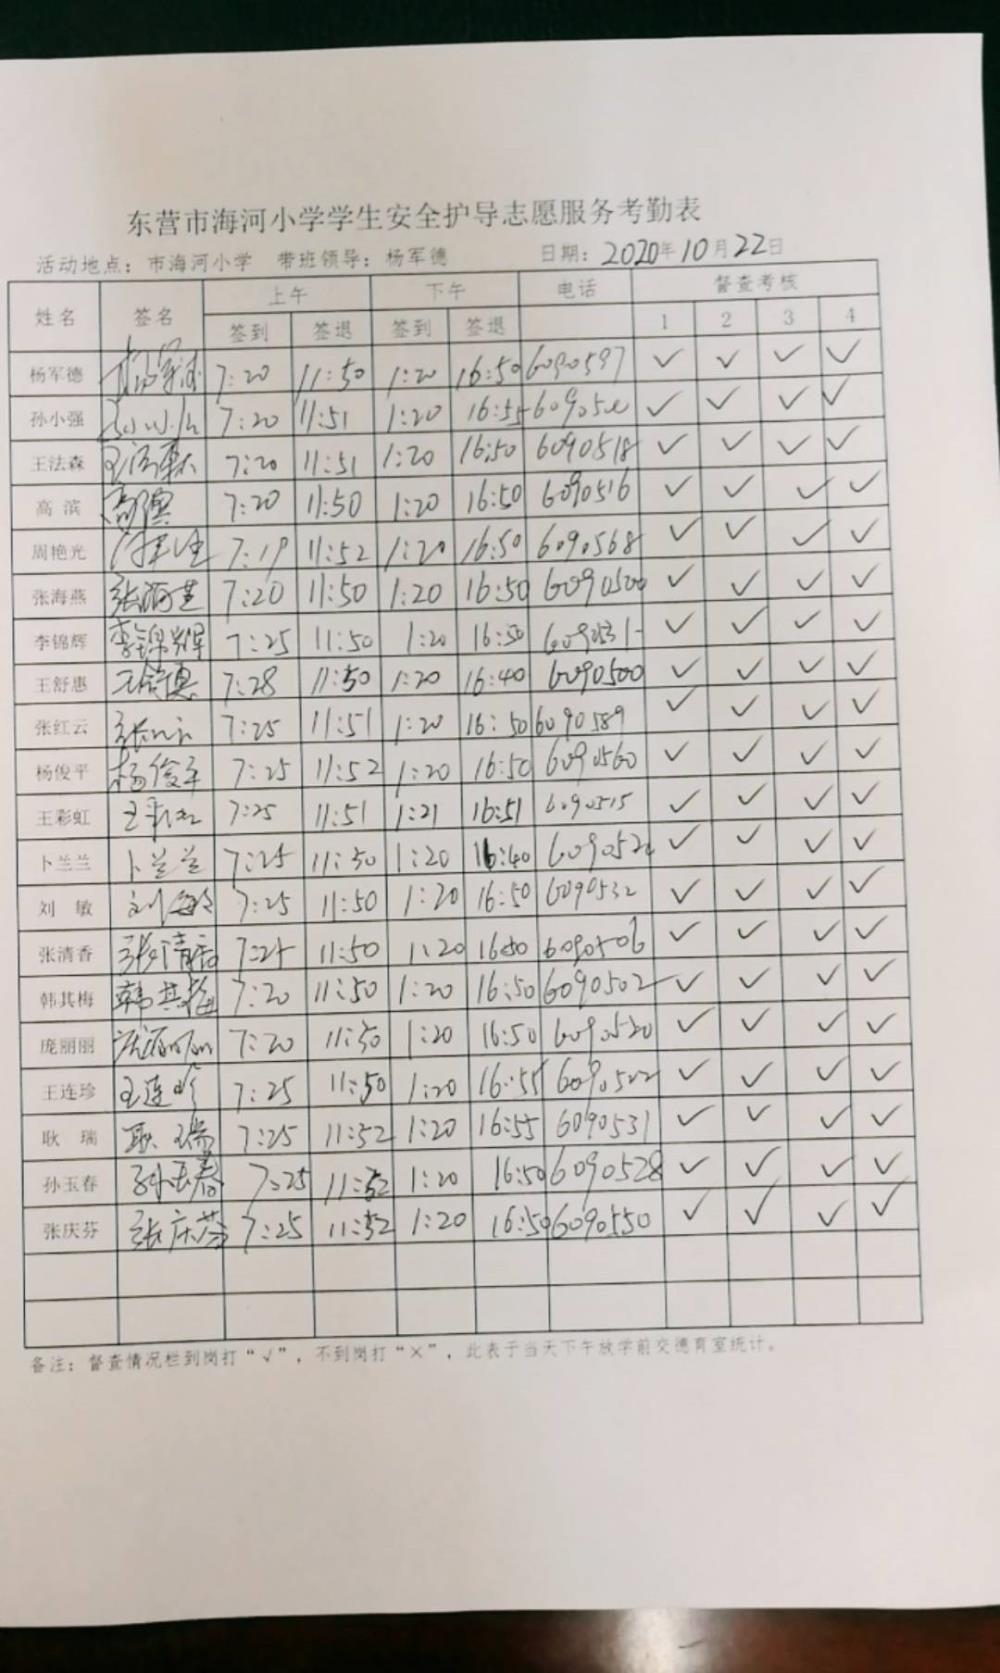 东营市海河小学学生安全护导志愿服务考勤表
活动地点：市海河小学 带班领导：杨军德 日期：2020年10月22日
姓名 签名 上午 下午 电话 督查考核
签到 签退 签到 签退 1 2 3 4
杨军德 7:20 11:50 1:20 16:50 6090597 ✓ ✓ ✓ ✓
孙小强 7:20 11:51 1:20 16:55 ✓ ✓ ✓ ✓
王法森 王法森 7:20 11:51 1:20 16:50 6090518 ✓ ✓ ✓ ✓
高 滨 高滨 7:20 11:50 1:20 16:50 6090516 ✓ ✓ ✓ ✓
周艳光 7:19 11:52 1:20 16:50 6090568 ✓ ✓ ✓ ✓
张海燕 张海燕 7:20 11:50 1:20 16:50 6090500 ✓ ✓ ✓ ✓
李锦辉 李锦辉 7:25 11:50 1:20 16:50 ✓ ✓ ✓ ✓
王舒惠 王舒惠 7:28 11:50 1:20 16:40 6090500 ✓ ✓ ✓ ✓
张红云 张红云 7:25 11:51 1:20 16:50 6090589 ✓ ✓ ✓ ✓
杨俊平 杨俊平 7:25 11:52 1:20 16:50 6090560 ✓ ✓ ✓ ✓
王彩虹 王彩虹 7:25 11:51 1:21 16:51 6090515 ✓ ✓ ✓ ✓
卜兰兰 卜兰兰 7:25 11:50 1:20 16:40 ✓ ✓ ✓ ✓
刘 敏 刘敏 7:25 11:50 1:20 16:50 6090532 ✓ ✓ ✓ ✓
张清香 张清香 7:25 11:50 1:20 16:50 6090506 ✓ ✓ ✓ ✓
韩其梅 韩其梅 7:20 11:50 1:20 16:50 6090502 ✓ ✓ ✓ ✓
庞丽丽 庞丽丽 7:20 11:50 1:20 16:50 6090520 ✓ ✓ ✓ ✓
王连珍 王连珍 7:25 11:50 1:20 16:55 6090522 ✓ ✓ ✓ ✓
耿 瑞 耿瑞 7:25 11:52 1:20 16:55 6090531 ✓ ✓ ✓ ✓
孙玉春 孙玉春 7:25 11:52 1:20 16:50 6090528 ✓ ✓ ✓ ✓
张庆芬 张庆芬 7:25 11:52 1:20 16:50 6090550 ✓ ✓ ✓ ✓
备注：督查情况栏到岗打“√”，不到岗打“×”，此表于当天下午放学前交德育室统计。